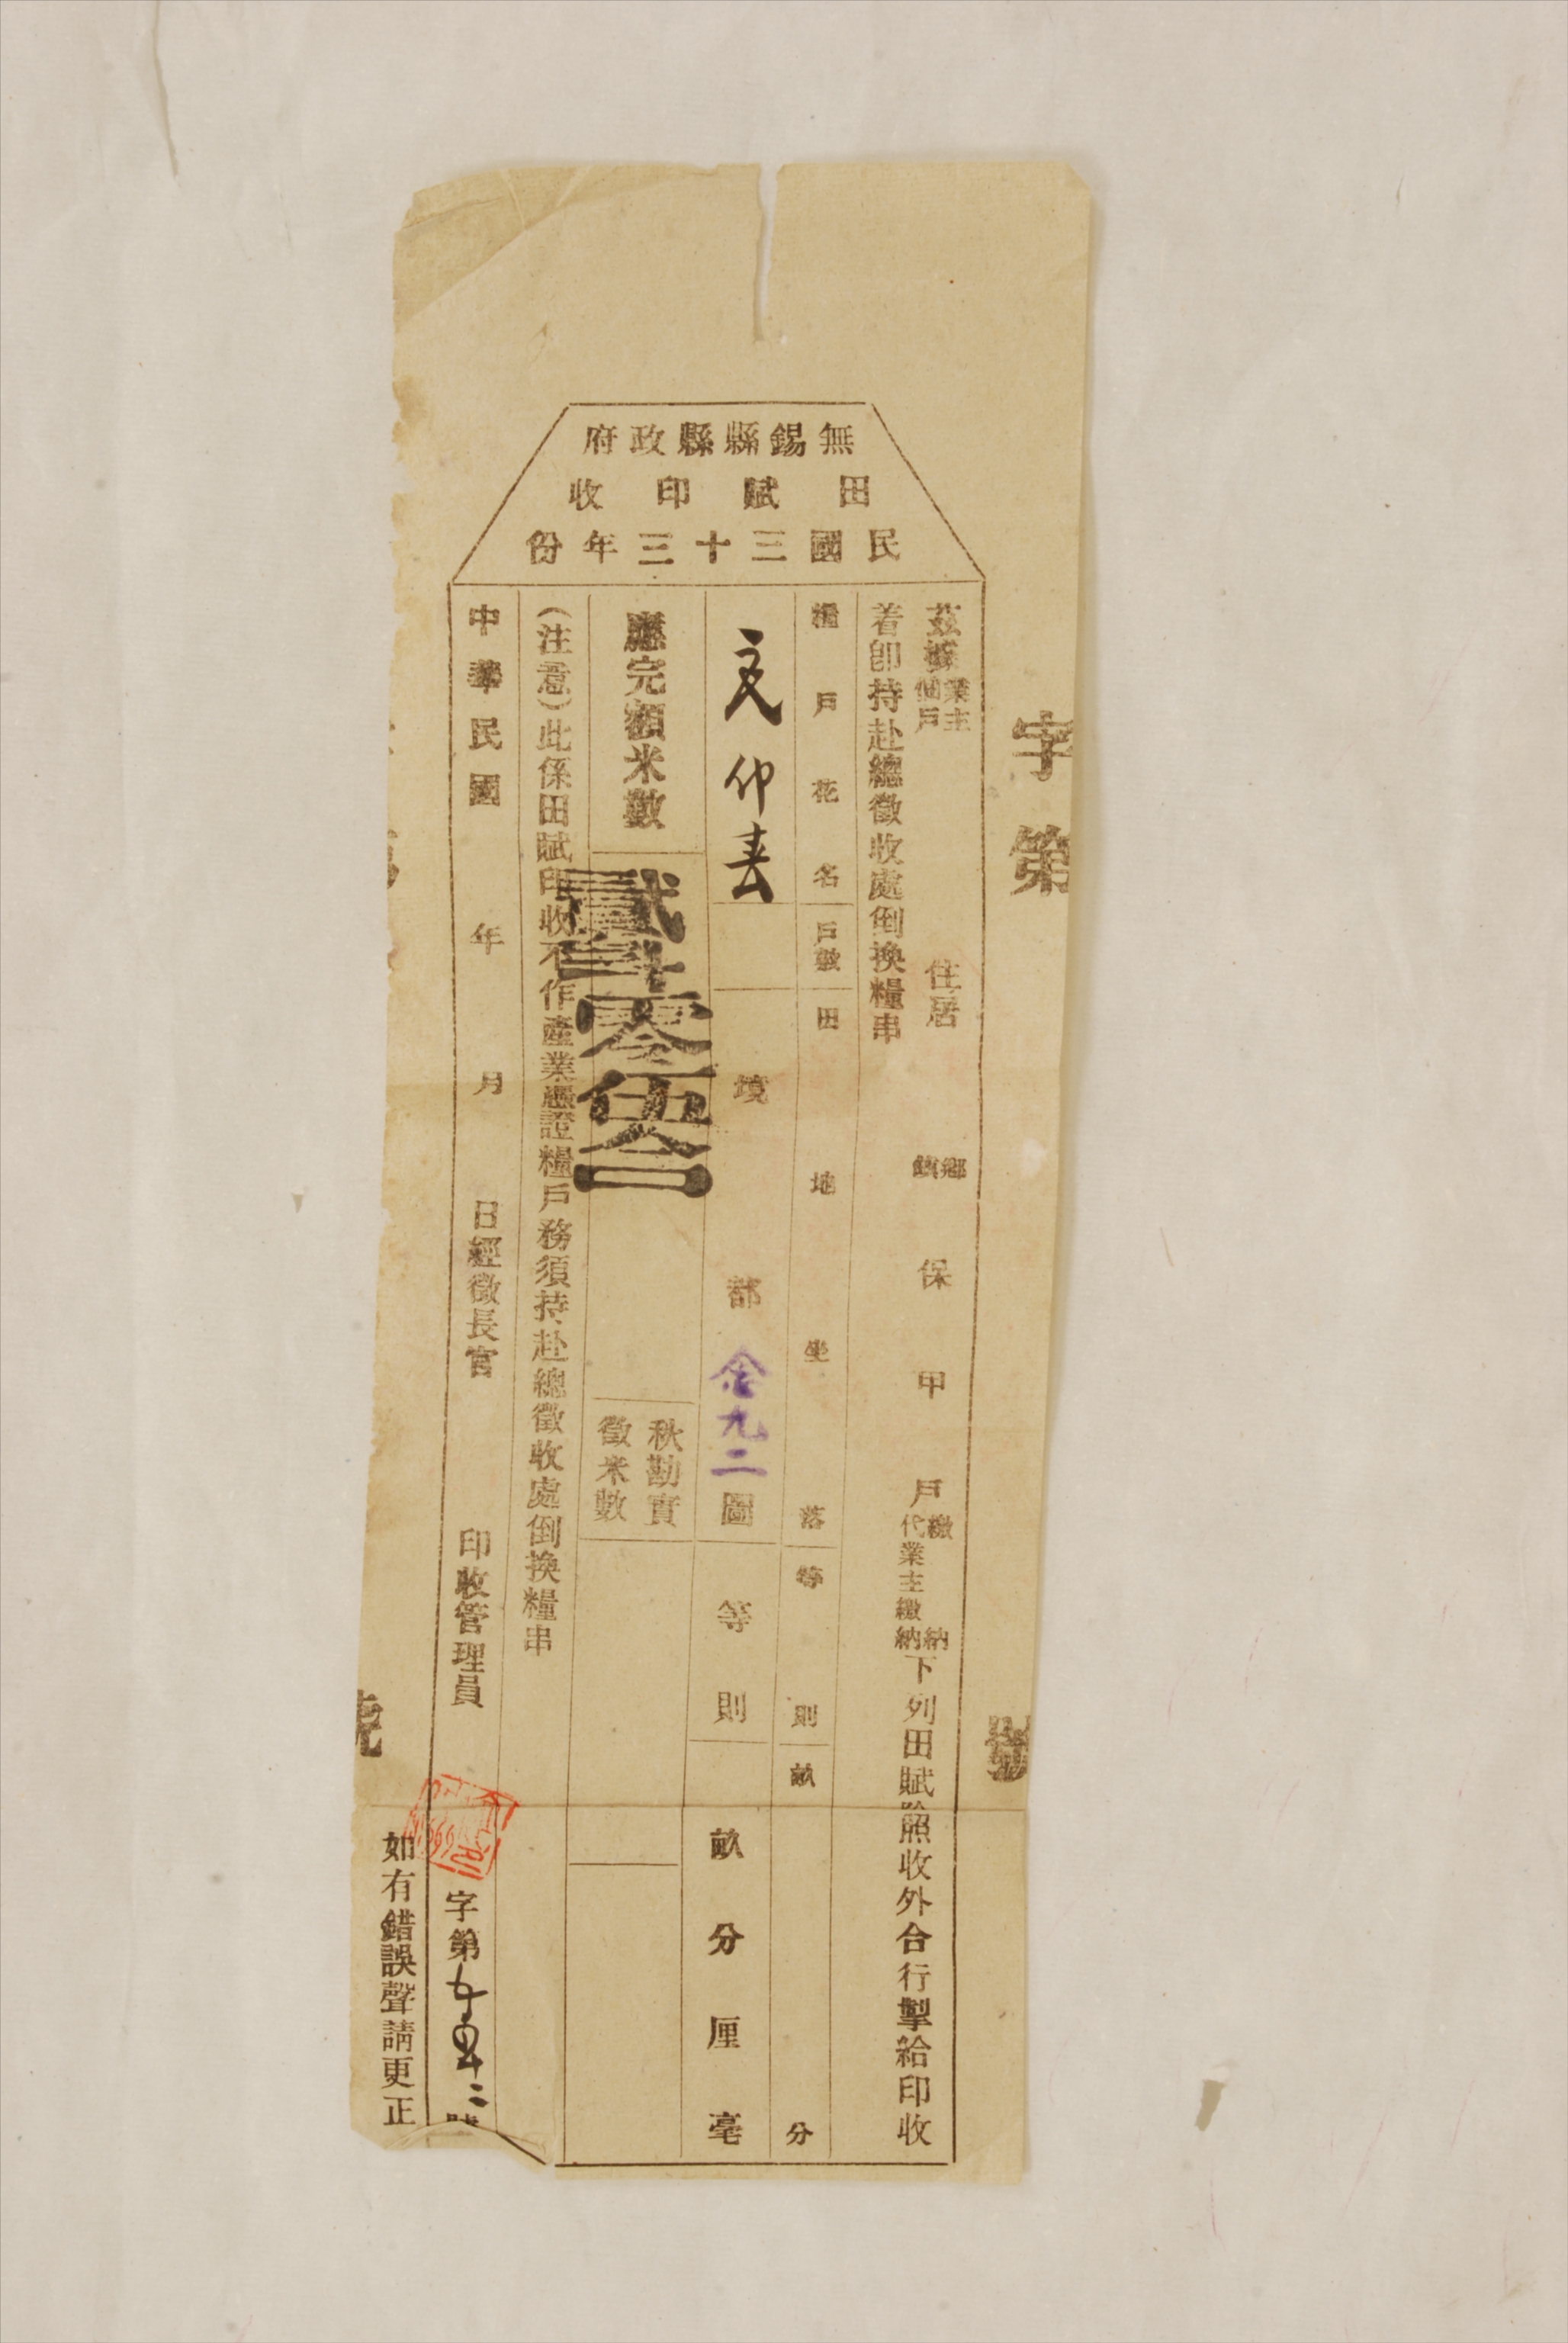 無錫縣縣政府
田賦印收
民國三十三年份
字第 號
茲據業主佃戶 住居 鄉鎮 保 甲 戶繳納代業主繳納下列田賦除照收外合行掣給印收
着卽持赴總徵收處倒換糧串
糧戶花名 戶數 田地坐落 等則 畝分
仰春 境 都 金九二 圖 等則 畝分厘毫
應完額米數 貳斗零伍合 秋勘實徵米數
(注意)此係田賦印收不作產業憑證糧戶務須持赴總徵收處倒換糧串
中華民國 年 月 日經徵長官 印收管理員 字第
如有錯誤聲請更正
號